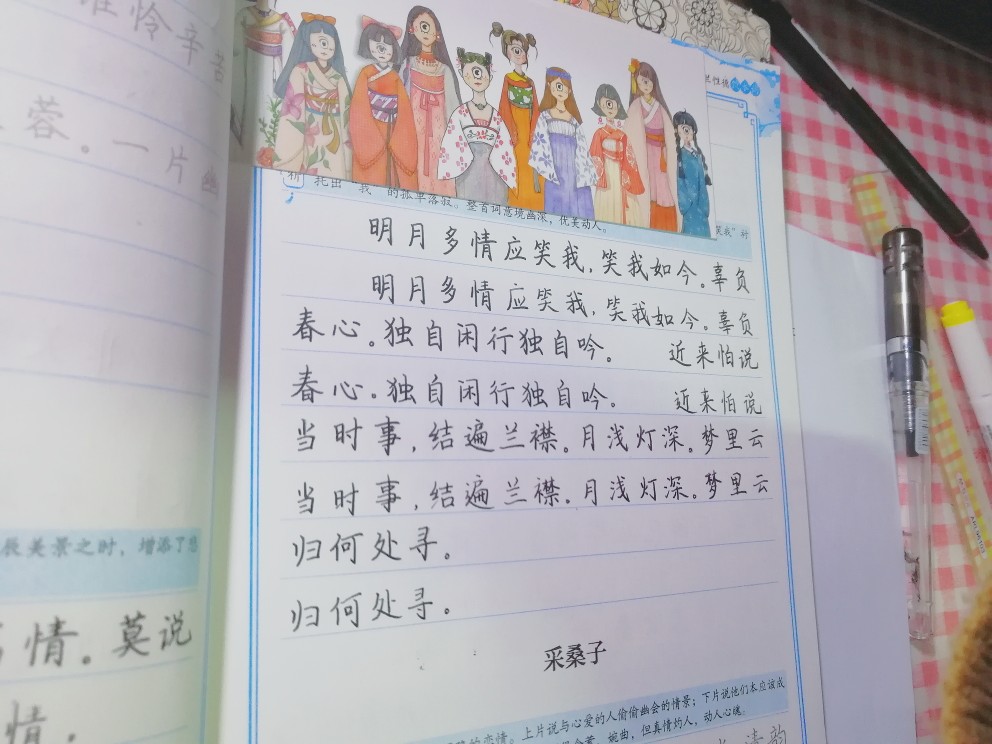 怜辛苦
蓉。一片幽
辰美景之时，增添了
情。莫说
情。
兰性德
析
托出“我”的孤单落寂。整首词意境幽深，优美动人。
笑我”时
明月多情应笑我，笑我如今。辜负
明月多情应笑我，笑我如今。辜负
春心。独自闲行独自吟。 近来怕说
春心。独自闲行独自吟。 近来怕说
当时事，结遍兰襟。月浅灯深。梦里云
当时事，结遍兰襟。月浅灯深。梦里云
归何处寻。
归何处寻。
采桑子
的恋情。上片说与心爱的人偷偷幽会的情景；下片说他们本应该成
婉曲，但真情灼人，动人心魂。
清韵